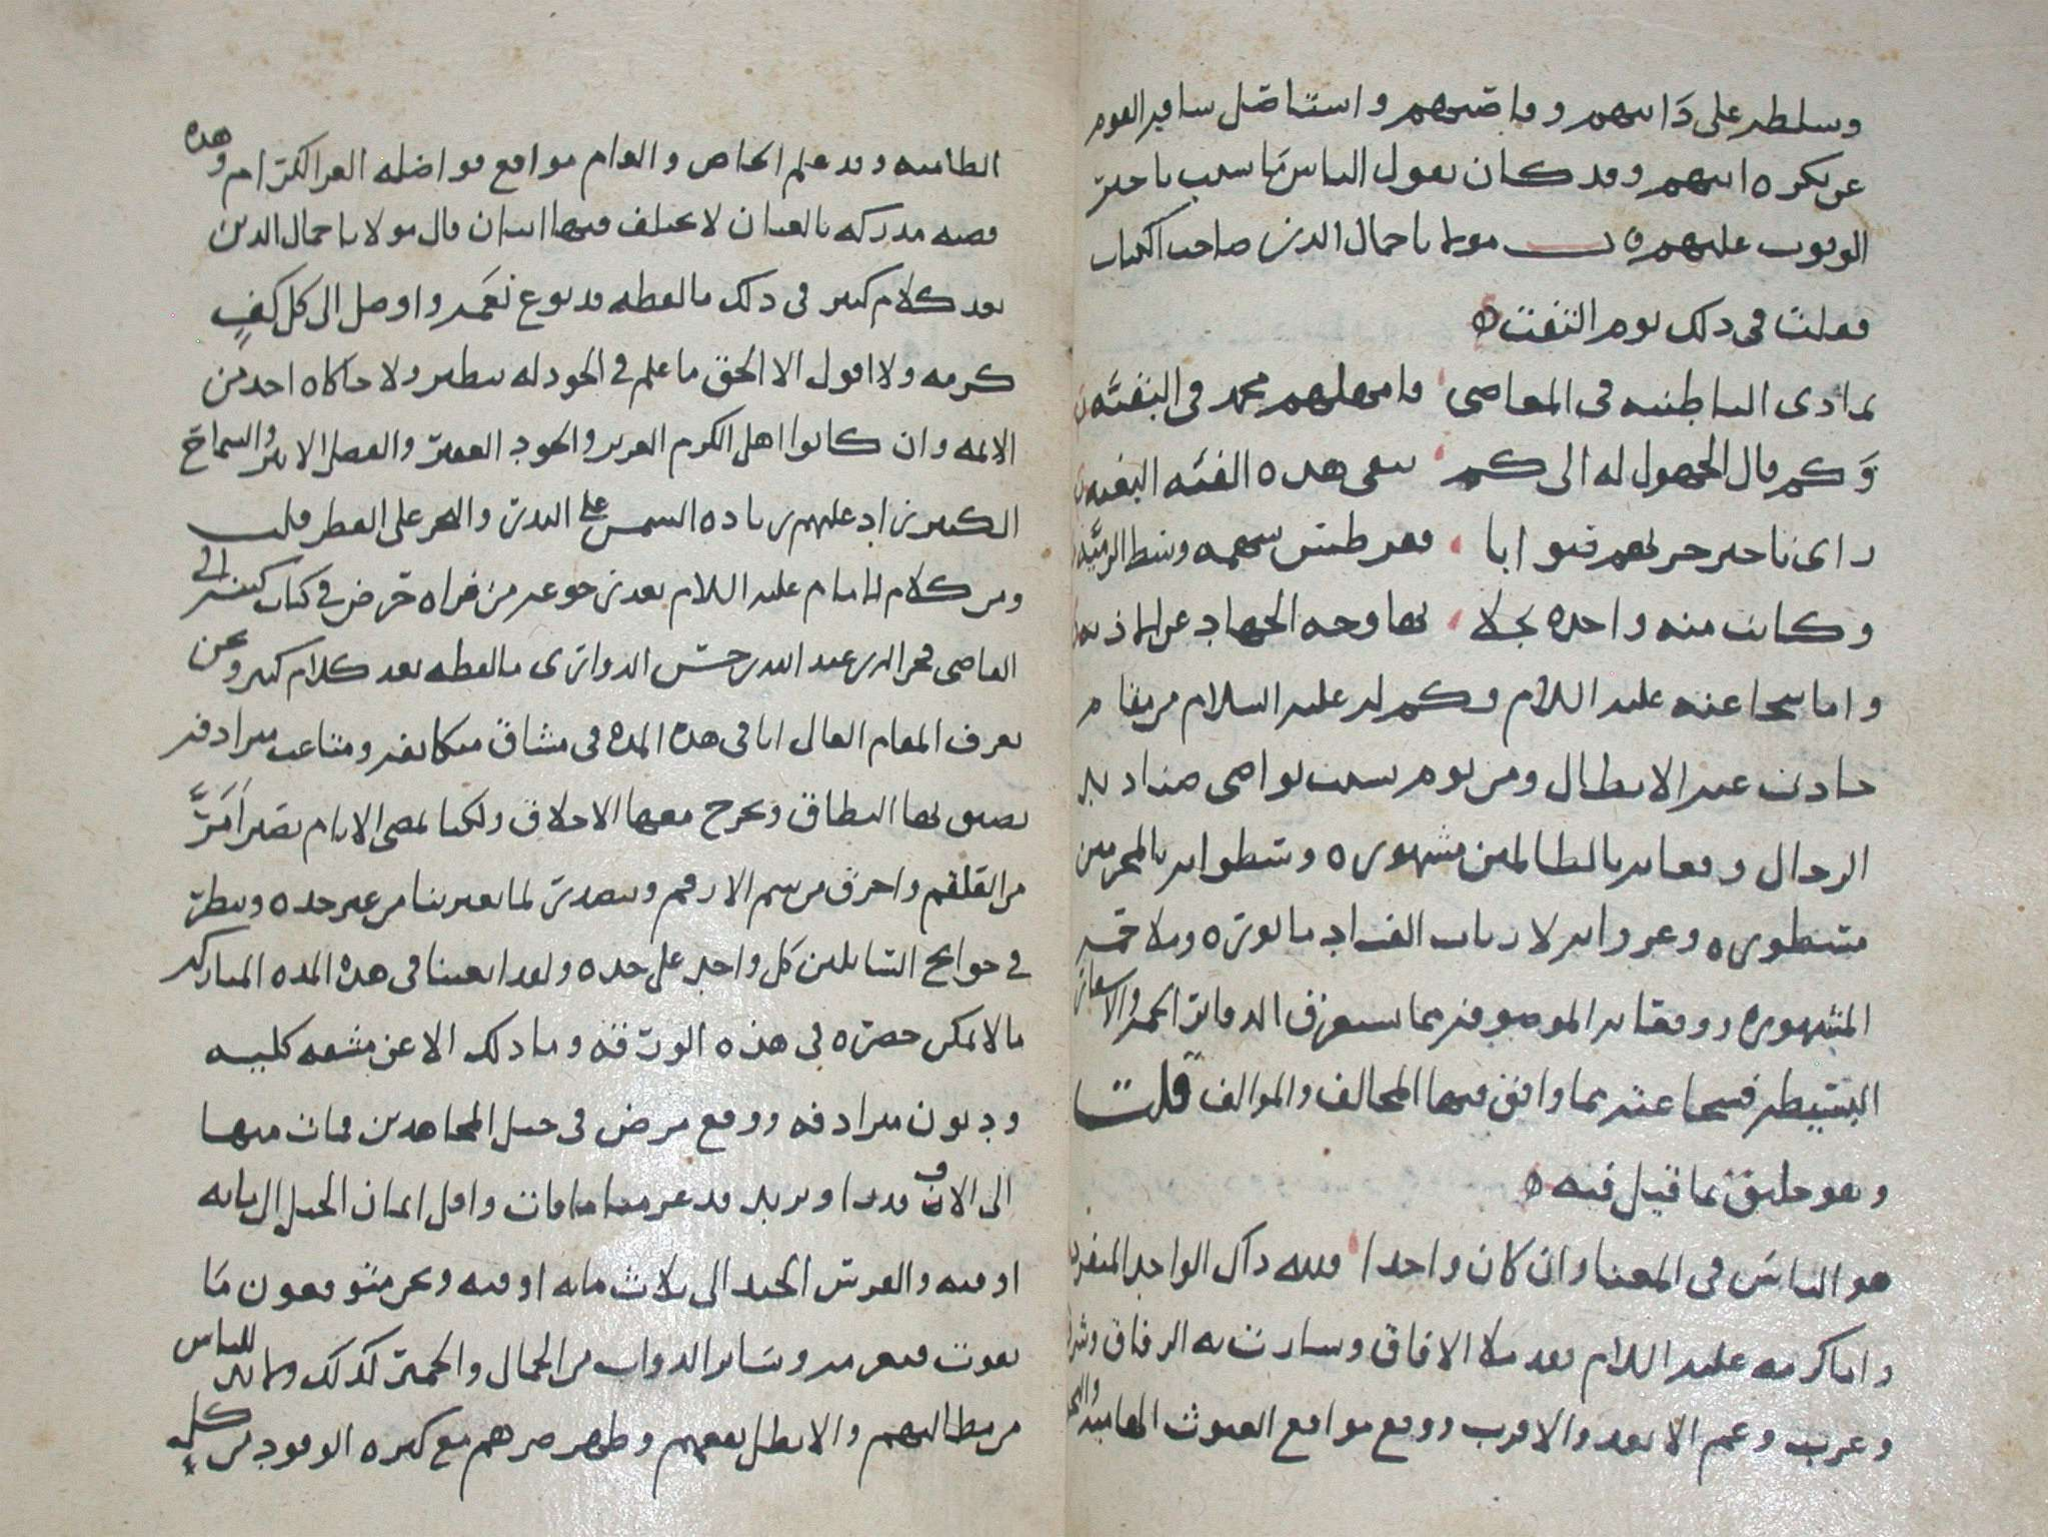 وسلطه على دانيهم وقاصيهم واستاصل سافه القوم
عن بكره ابيهم وقد كان يقول الناس ما سبب تاخير
الوثوب عليهم قال مولانا جمال الدين صاحب الكتاب
فقلت في ذلك يوم الفتنه
تمادى الباطنيه في المعاصي وامهلهم محمد في البقيه
وكم قال الجهول له الى كم تبقى هذه الفئه البغيه
راى تاخير حربهم صوابا فقرطس سهمه وسط الرميه
وكانت منه واحده تجلا بها وجه الجهاد عن
واما شجاعته عليه السلام وكم له عليه السلام من مقام
حادت عنه الابطال ومن يوم شيبت نواصي صناديد
الرجال ووقعاته بالظالمين مشهوره وسطواته بالمجرمين
مسطوره وغزواته لارباب الفساد ماثوره وملاحمه
المشهوره ووقعاته الموصوفه مما يستغرق الدفاتر الجمه والاسفار
البسيطه فشجاعته مما وافق فيها المخالف والموالف قلت
وهو خليق بما قيل فيه
هو الناس في المعنا وان كان واحدا فلله ذاك الواحد المتفرد
واما كرمه عليه السلام فقد ملا الافاق وسارت به الرفاق وشرق
وغرب وعم الابعد والاقرب ووقع مواقع الغيوث الهاميه والبحار
الطاميه وقد علم الخاص والعام مواقع فواضله الغر الكرام وهذه
قصه مدركه بالعيان لا يختلف فيها اثنان قال مولانا جمال الدين
بعد كلام كثير في ذلك ما لفظه قد نوع نعمه واوصل الى كل كف
كرمه ولا اقول الا الحق ما علم في الجود له بنظير ولا حاكاه احد من
الائمه وان كانوا اهل الكرم الغزير والجود والفضل الاثير والسماح
الكثير زاد عليهم زياده الشمس على البدر والبحر على القطر قلت
ومن كلام الامام عليه السلام بعد رجوعه من قراه حرض في كتاب كتبه الى
القاضي فخر الدين عبد الله بن حسن الدواري ما لفظه بعد كلام كثير ونحن
نعرف المقام العالي انا في هذه المده في مشاق متكاثفه ومتاعب مترادفه
يضيق بها النطاق وتحرج معها الاخلاق ولكنا نمضي الايام بصبر امر
من العلقم واحرق من سم الارقم ونتصدى لما يعترينا من غير حده وننظر
في حوايج السايلين كل واحد على حده ولقد انفقنا في هذه المده المباركه
ما لا يمكن حصره في هذه الورقه وما ذلك الا عن مشقه كليه
وديون مترادفه ووقع مرض في خيل المجاهدين فمات منها
الى الان وقدرا ويزيد قد غرمنا ما فات واقل اثمان الخيل الى مايه
اوقيه والفرس الجيد الى ثلاث مايه اوقيه ونحن متوقعون ما
يموت فنغرمه وساير الدواب من الجمال والحمير كذلك وما للناس
من مطالبهم والا بطل نفعهم وظهر ضرهم مع كثره الوفود من كل